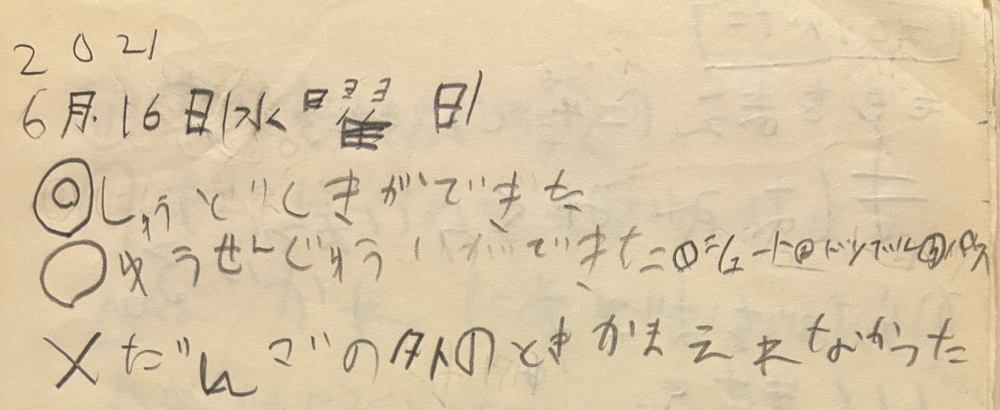 2021
6月16日(水曜日)
◎しゅうとりくきができた
○ゆうせんじゅういができた①シュート②ドリブル③パス
×だんごの外のときかまえれなかった